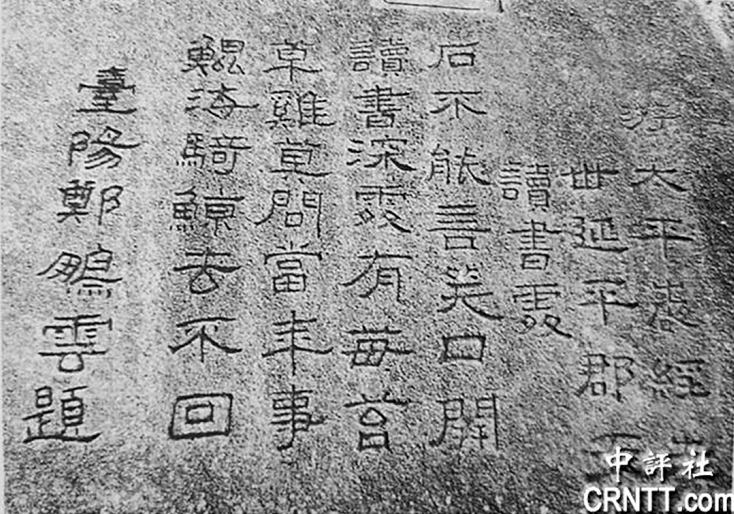 游太平岩經先
世延平郡王
讀書處
石不能言笑口開
讀書深處有苺苔
草雞莫問當年事
鯤海騎鯨去不回
臺陽鄭鵬雲題
中評社
CRNTT.com